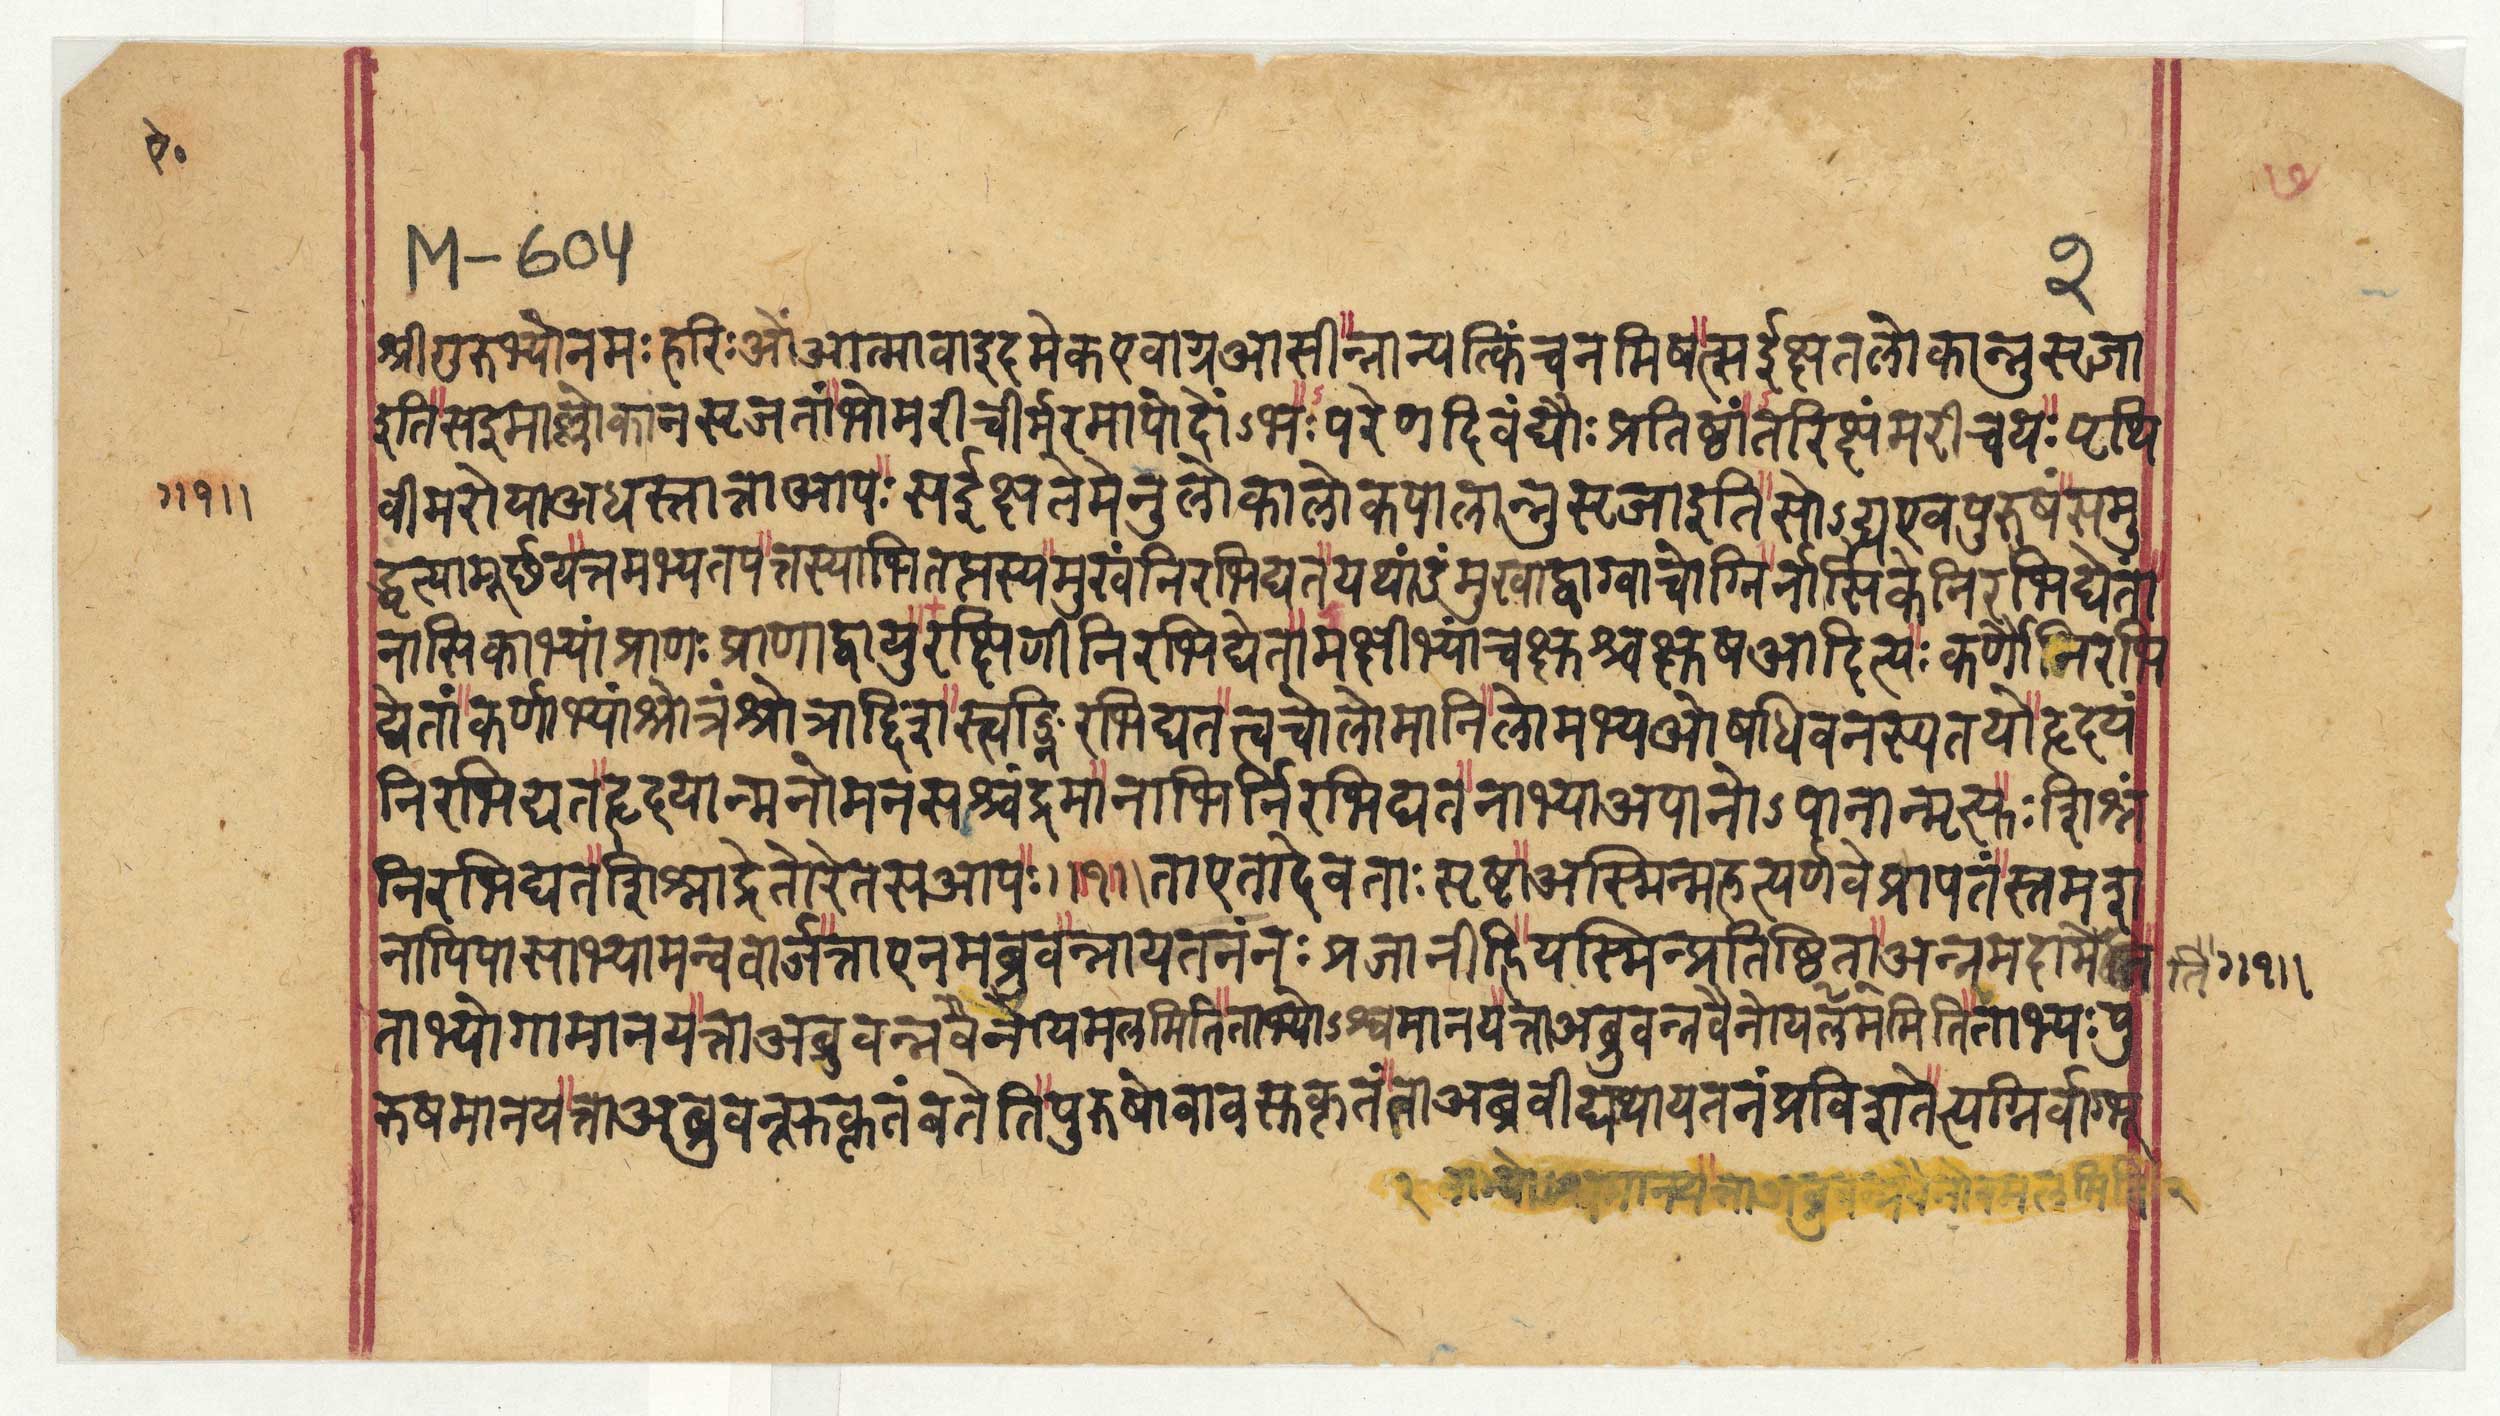 ऐ०
M-604
२
श्रीगुरुभ्योनमः हरिःओंआत्मावाइदमेकएवाग्रआसीन्नान्यत्किंचनमिषत्सईक्षतलोकान्नुसृजा
इतिसइमाल्लोकानसृजतांभोमरीचीर्मरमापोदोंऽभःपरेणदिवंद्यौःप्रतिष्ठांतरिक्षंमरीचयःपृथि
वीमरोयाअधस्तात्ताआपःसईक्षतेमेनुलोकालोकपालान्नुसृजाइतिसोऽद्भ्यएवपुरुषंसमु
॥१॥
द्धृत्यामूर्छयत्तमभ्यतपत्तस्याभितप्तस्यमुखंनिरभिद्यतयथांडंमुखाद्वाग्वाचोग्निर्नासिकेनिरभिद्येतां
नासिकाभ्यांप्राणःप्राणाद्वायुरक्षिणीनिरभिद्येतामक्षीभ्यांचक्षुश्चक्षुषआदित्यःकर्णौनिरभि
द्येतांकर्णाभ्यांश्रोत्रंश्रोत्राद्दिशस्त्वङ्निरभिद्यतत्वचोलोमानिलोमभ्यओषधिवनस्पतयोहृदयं
निरभिद्यतहृदयान्मनोमनसश्चंद्रमानाभिर्निरभिद्यतनाभ्याअपानोऽपानान्मृत्युःशिश्नं
निरभिद्यतशिश्नाद्रेतोरेतसआपः॥१॥ताएतादेवताःसृष्टाअस्मिन्महत्यर्णवेप्रापतंस्तमश
नापिपासाभ्यामन्ववार्जत्ताएनमब्रुवन्नायतनंनःप्रजानीहियस्मिन्प्रतिष्ठिताअन्नमदामेति
॥१॥
ताभ्योगामानयत्ताअब्रुवन्नवैनोयमलमितिताभ्योऽश्वमानयत्ताअब्रुवन्नवैनोयलंममितिताभ्यःपु
रुषमानयत्ताअब्रुवन्सुकृतंबतेतिपुरुषोवावसुकृतंताअब्रवीद्यथायतनंप्रविशतेत्यग्निर्वाग्भू
२ ताभ्योऽश्वमानयत्ताअब्रुवन्नवैनोयमलमिति २